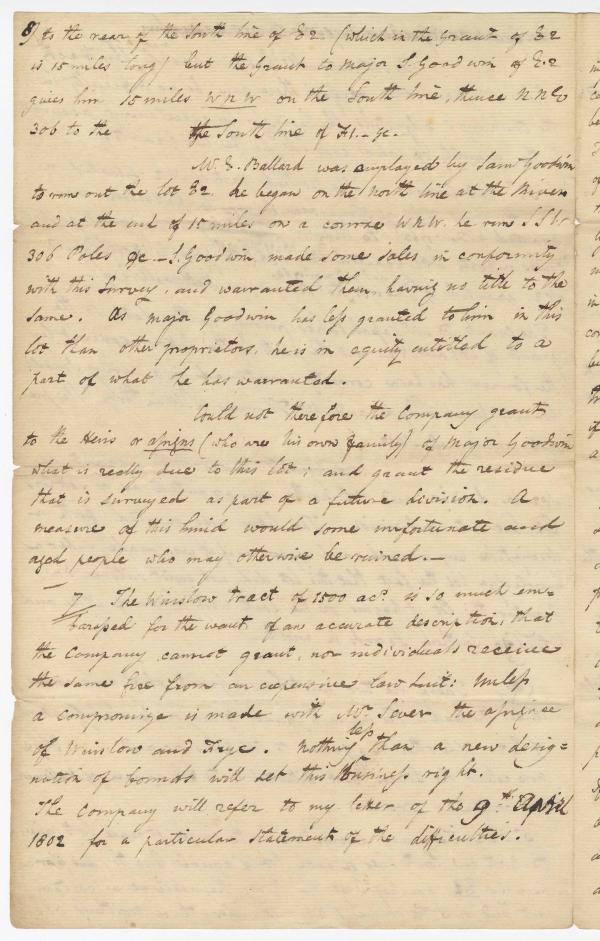 8) to the rear of the South line of E2 (which in the Grant of E2
is 15 miles long) but the Grant to Major S. Goodwin of E.2
gives him 15 miles WNW on the South line, thence NNE
306 to the the South line of F1. &c.
Mr. E. Ballard was employed by Saml Goodwin
to run out the lot E2. he began on the North line at the River
and at the end of 15 miles on a course WNW. he run SSW
306 Poles &c. S. Goodwin made some sales in conformity
with this Survey, and warranted them, having no title to the
same. As Major Goodwin has less granted to him in this
lot than other proprietors, he is in equity entitled to a
part of what he has warranted.
Could not therefore the Company grant
to the Heirs or assigns (who are his own family) of Major Goodwin
what is really due to this lot; and grant the residue
that is surveyed as part of a future division. A
measure of this kind would some unfortunate and
aged people who may otherwise be ruined.—
7 The Winslow tract of 1500 acs. is so much em=
barassed for the want of an accurate description, that
the Company cannot grant, nor individuals receive
the same free from an expensive law suit: Unless
a compromize is made with Mr. Sever the assignee
of Winslow and Frye. Nothing less than a new desig=
nation of bounds will set this business right.
The Company will refer to my letter of the 9th. April
1802 for a particular statement of the difficulties.